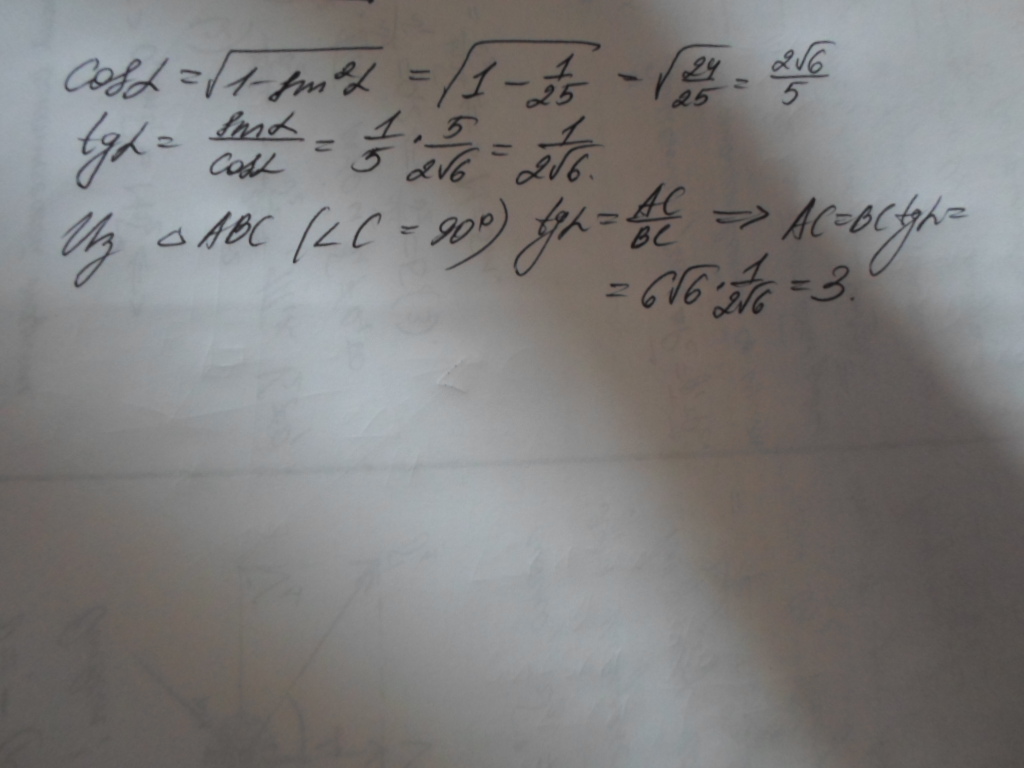 cosα = √(1-sin²α) = √(1 - 1/25) - √(24/25) = 2√6/5
tgα = sinα/cosα = 1/5 · 5/2√6 = 1/2√6.
Из △ABC (∠C = 90°) tgα = AC/BC => AC = BC tgα =
= 6√6 · 1/2√6 = 3.